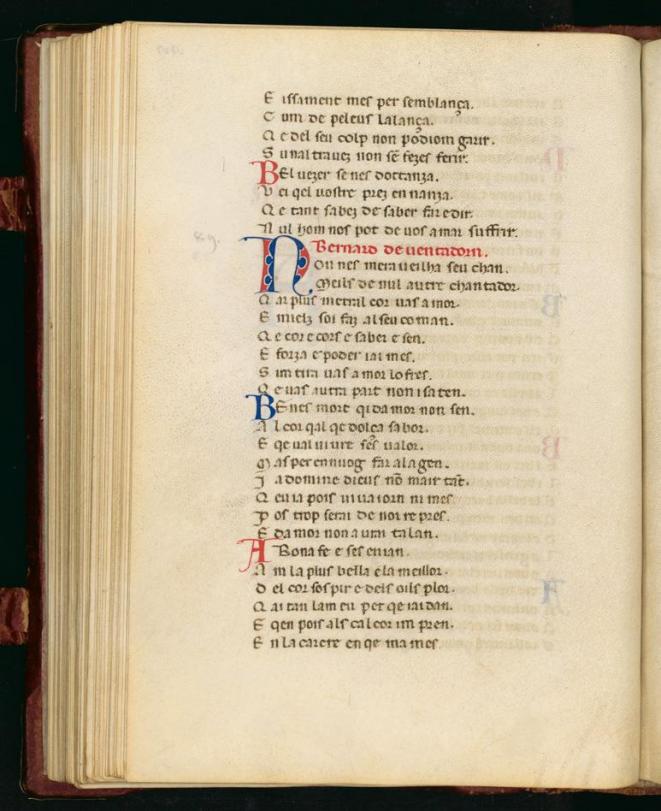 E issament mes per semblança.
C um de peleus la lança.
Q e del seu colp non podiom garir.
S unaltra vez non sē fezes ferir.
BEl vezer se nes dottanza.
V ei qel vostre prez en nanza.
Q e tant sabez de saber far e dir.
N ul hom nos pot de vos amar suffrir.
Bernard de ventadorn.
NOn nes meraveilha seu chan.
Meils de nul autre chantador.
Q ar plus metral cor vas amor.
E mielz soi faz al seu coman.
Q e cor e cors e saber e sen.
E forza e poder iai mes.
S im tira vas amor lo fres.
Q e vas autra part non i saten.
BEnes mort qi damor non sen.
A l cor qal qe dolça sabor.
E qe val viure ses valor.
M as per ennuog far a la gen.
J a domine dieus nō mair tāt.
Q eu ia pois viva iorn ni mes.
P os trop serai de noi repres.
E damor non aurai talan.
A Bona fe e ses enian.
A m la plus bella e la meillor.
D el cor sospir e dels oils plor.
Q ar tan lam eu per qe iai dan.
E qen pois als cal cor im pren.
E n la carcre en qe ma mes.